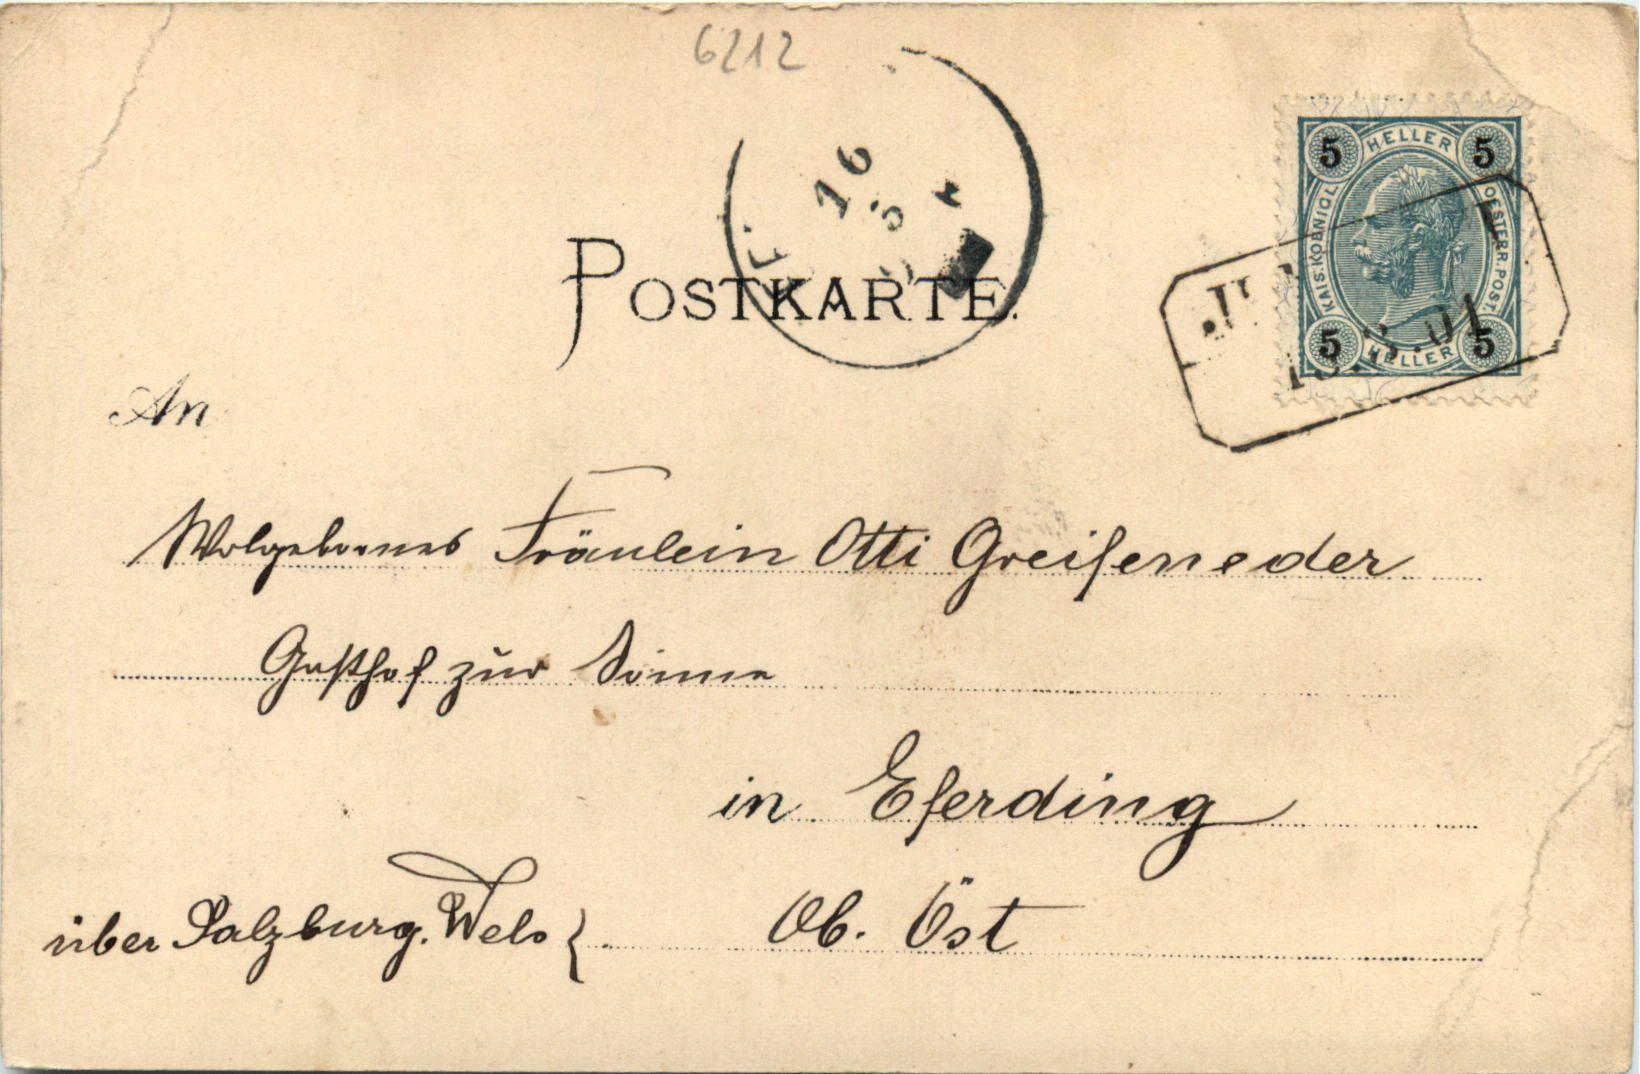 6212
16
5
POSTKARTE.
5 HELLER 5
KAIS. KOENIGL. OESTERR. POST.
5 HELLER 5
An
Wolgebornes Fräulein Otti Greifeneder
Gasthof zur Sonne
in Eferding
über Salzburg. Wels { Ob. Öst